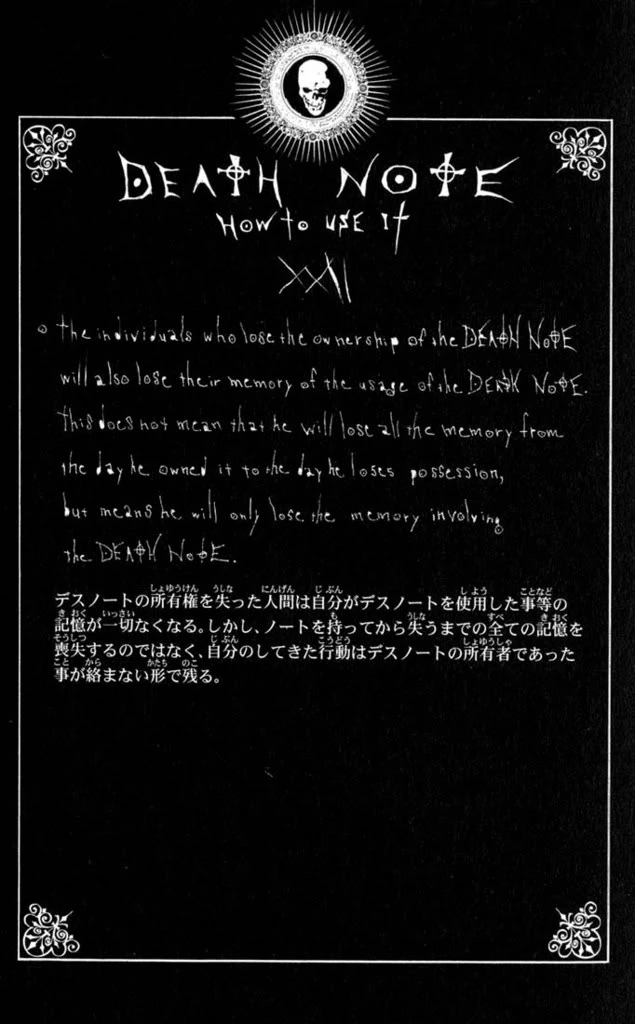 DEATH NOTE
HOW to USE It
XXII
○ the individuals who lose the ownership of the DEATH NOTE
will also lose their memory of the usage of the DEATH NOTE.
This does not mean that he will lose all the memory from
the day he owned it to the day he loses possession,
but means he will only lose the memory involving
the DEATH NOTE.
デスノートの所有権を失った人間は自分がデスノートを使用した事等の
記憶が一切なくなる。しかし、ノートを持ってから失うまでの全ての記憶を
喪失するのではなく、自分のしてきた行動はデスノートの所有者であった
事が絡まない形で残る。